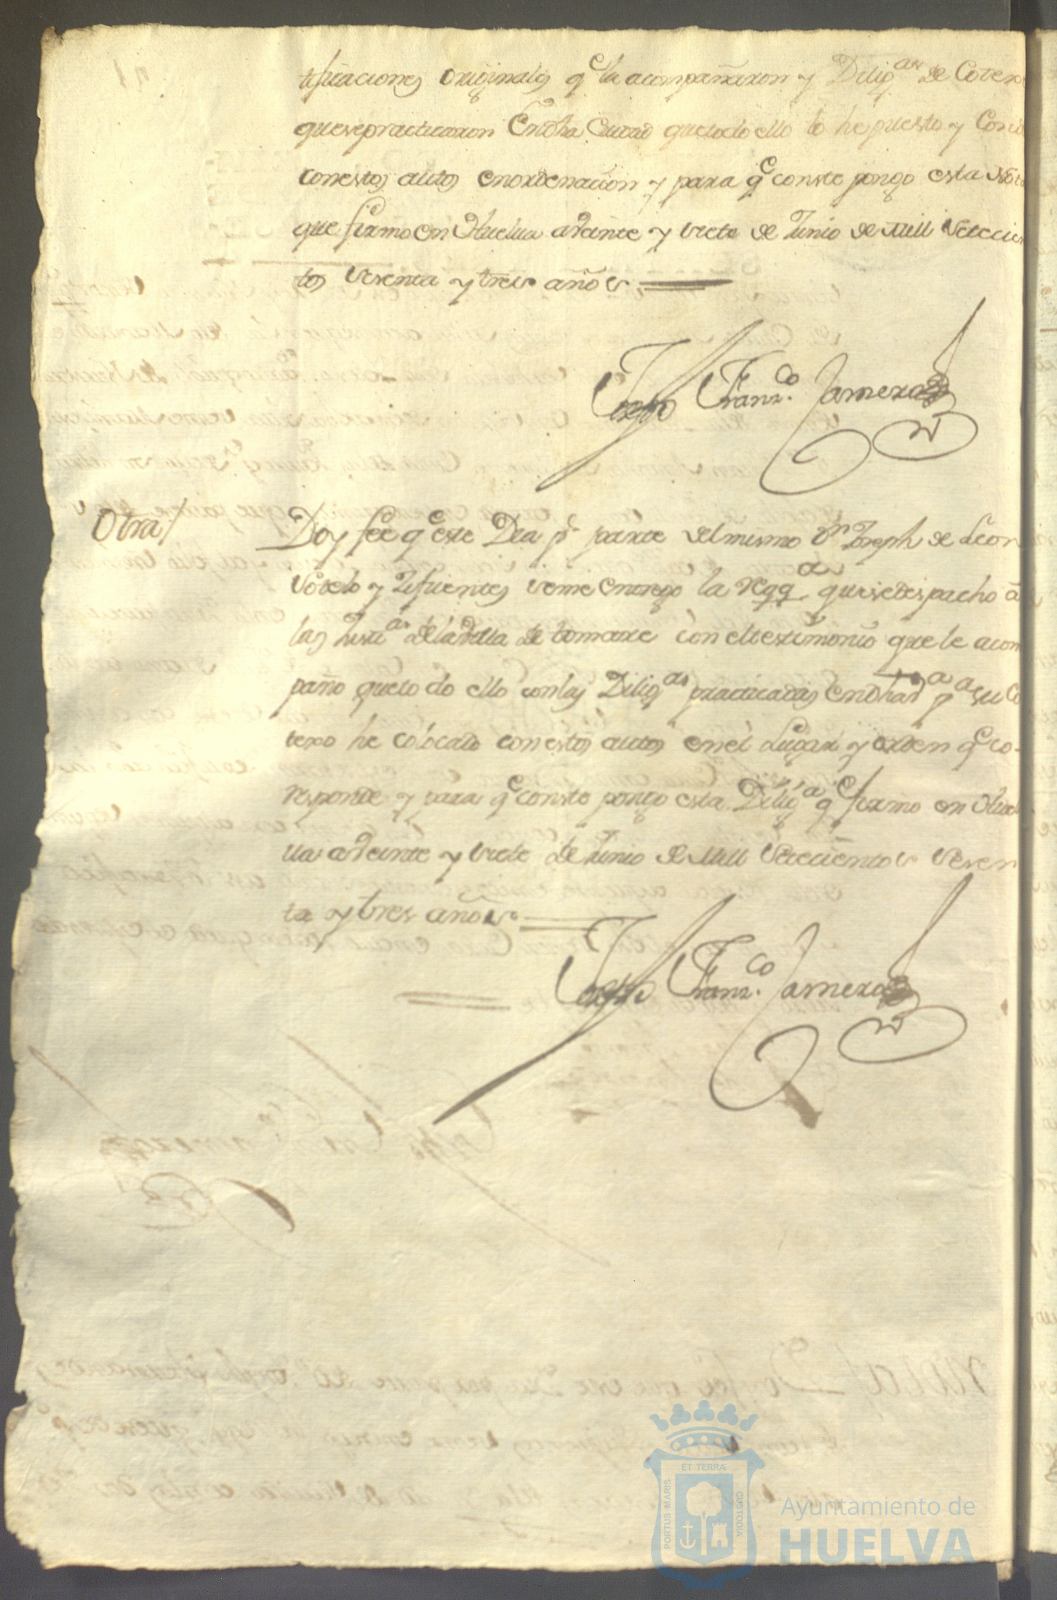 tificaciones originales q.e la acompañaron y Dilig.as de Cotexo
que se practicaron En dha Ciudad que todo ello lo he puesto y
con estos autos en ordenacion y para q.e conste pongo esta Nota
que firmo en Huelva a Veinte y siete de Junio de Mill Setecien
tos sesenta y tres años
Joseph Franz.co Jamera
Otra/
Doy fee q.e este Dia p.r parte del mismo D.n Joseph de Leon
Sotelo y Zifuentes se me entrego la reqq.a que se despacho a
las Just.as de la Villa de tomare con el testimonio que le acom
paño que todo ello con las Dilig.as practicadas en dha v.a p.a su Co
texo he colocado con estos autos en el Lugar y orden q.e co-
rresponde y para q.e conste pongo esta Dilig.a q.e firmo en Huel
va a Veinte y siete de Junio de Mill Setecientos sesen
ta y tres años
Joseph Franz.co Jamera
PORTUS MARIS
ET TERRÆ
CUSTODIA
Ayuntamiento de
HUELVA